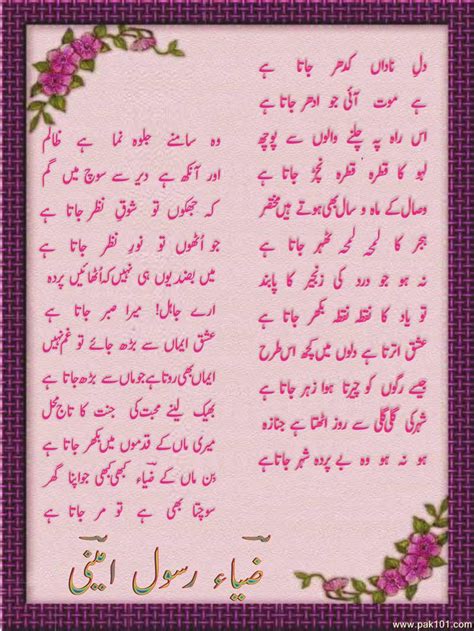 دلِ ناداں کدھر جاتا ہے
ہے موت آئی جو ادھر جاتا ہے
اس راہ پہ چلنے والوں سے پوچھ
لہو کا قطرہ قطرہ نچڑ جاتا ہے
وصال کے ماہ و سال بھی ہوتے ہیں مختصر
ہجر کا لمحہ لمحہ ٹھہر جاتا ہے
نہ ہو جو درد کی زنجیر کا پابند
تو یاد کا نقطہ نقطہ بکھر جاتا ہے
عشق اترتا ہے دلوں میں کچھ اس طرح
جیسے رگوں کو چیرتا ہوا زہر جاتا ہے
شہر کی گلی گلی سے روز اٹھتا ہے جنازہ
ہو نہ ہو وہ بے پردہ شہر جاتا ہے
وہ سامنے جلوہ نما ہے ظالم
اور آنکھ ہے دیر سے سوچ میں گم
کہ جھکوں تو شوقِ نظر جاتا ہے
جو اُٹھوں تو نورِ نظر جاتا ہے
میں بضد یوں ہی نہیں کہ اُٹھائیں پردہ
ارے جاہل! میرا صبر جاتا ہے
عشق ایماں سے بڑھ جائے تو غم نہیں
ایماں بھی روتا ہے جو ماں سے بڑھ جاتا ہے
بھیک لینے محبت کی جنت کا تاج محل
میری ماں کے قدموں میں بکھر جاتا ہے
بن ماں کے ضیاء کبھی کبھی جو اپنا گھر
سوچتا بھی ہے تو مر جاتا ہے
ضیاء رسول امینی
www.pak101.com